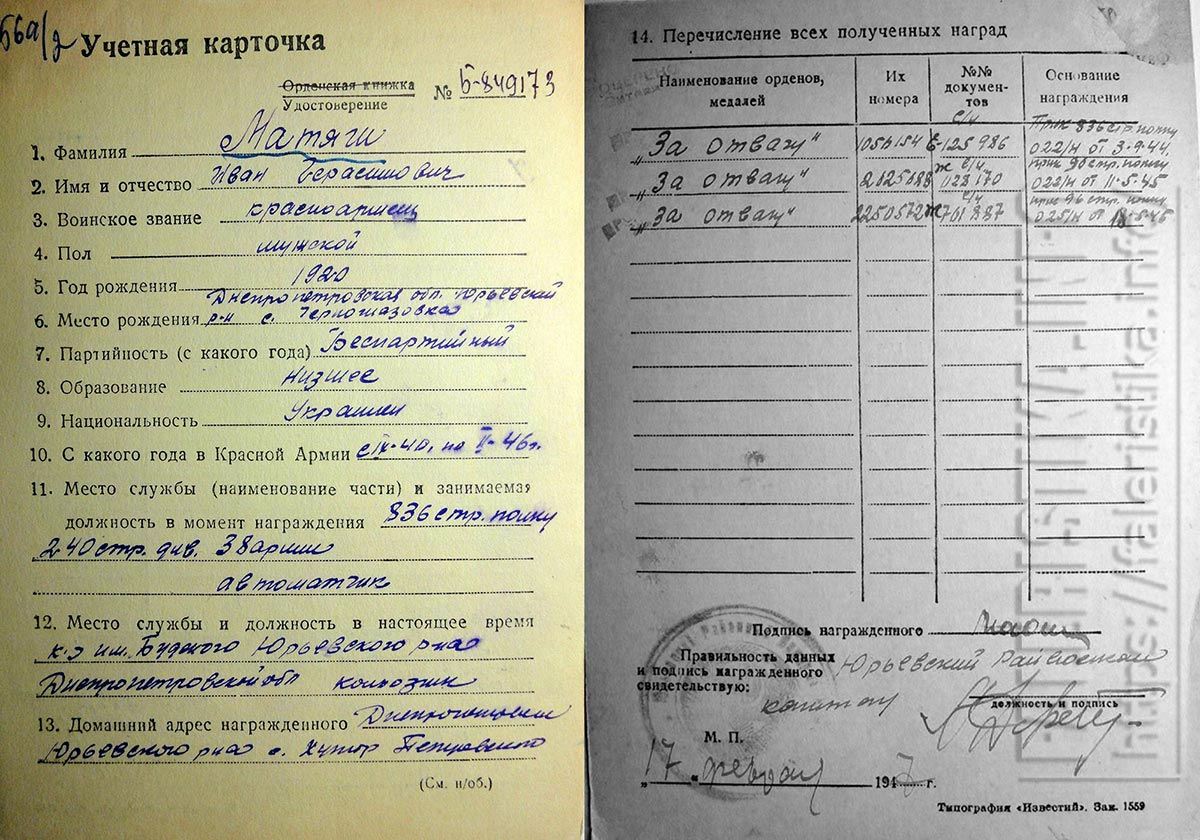 Учетная карточка
Орденская книжка
Удостоверение № Б-849173
1. Фамилия Матяги
2. Имя и отчество Иван Герасимович
3. Воинское звание красноармеец
4. Пол мужской
5. Год рождения 1920
Днепропетровская обл. Юрьевский
6. Место рождения р-н с.
7. Партийность (с какого года) Беспартийный
8. Образование Низшее
9. Национальность Украинец
10. С какого года в Красной Армии с IX-40, по II-46г.
11. Место службы (наименование части) и занимаемая
должность в момент награждения 836 стр. полку
240 стр. див. 38 армии
автоматчик
12. Место службы и должность в настоящее время
к-з им. Юрьевского р-на
Днепропетровской обл колхозник
13. Домашний адрес награжденного
Юрьевского р-на с. Хутор
(См. н/об.)
14. Перечисление всех полученных наград
Наименование орденов, медалей Их номера №№ документов Основание награждения
с/ч Прик 836 стр. полку
„За отвагу" 1056154 Е-125986 022/н от 3-9-44
ж с/ч прик 96 стр. полку
„За отвагу" 128170 022/н от 11-5-45
с/ч прик 96 стр. полку
„За отвагу" 2250572 ж 761887 025/н от 18-5-45
Подпись награжденного
Правильность данных Юрьевский Райвоенком
и подпись награжденного
свидетельствую:
капитан
должность и подпись
М. П.
„17" февраля 1947 г.
Типография «Известий». Зак. 1559
https://faleristika.info